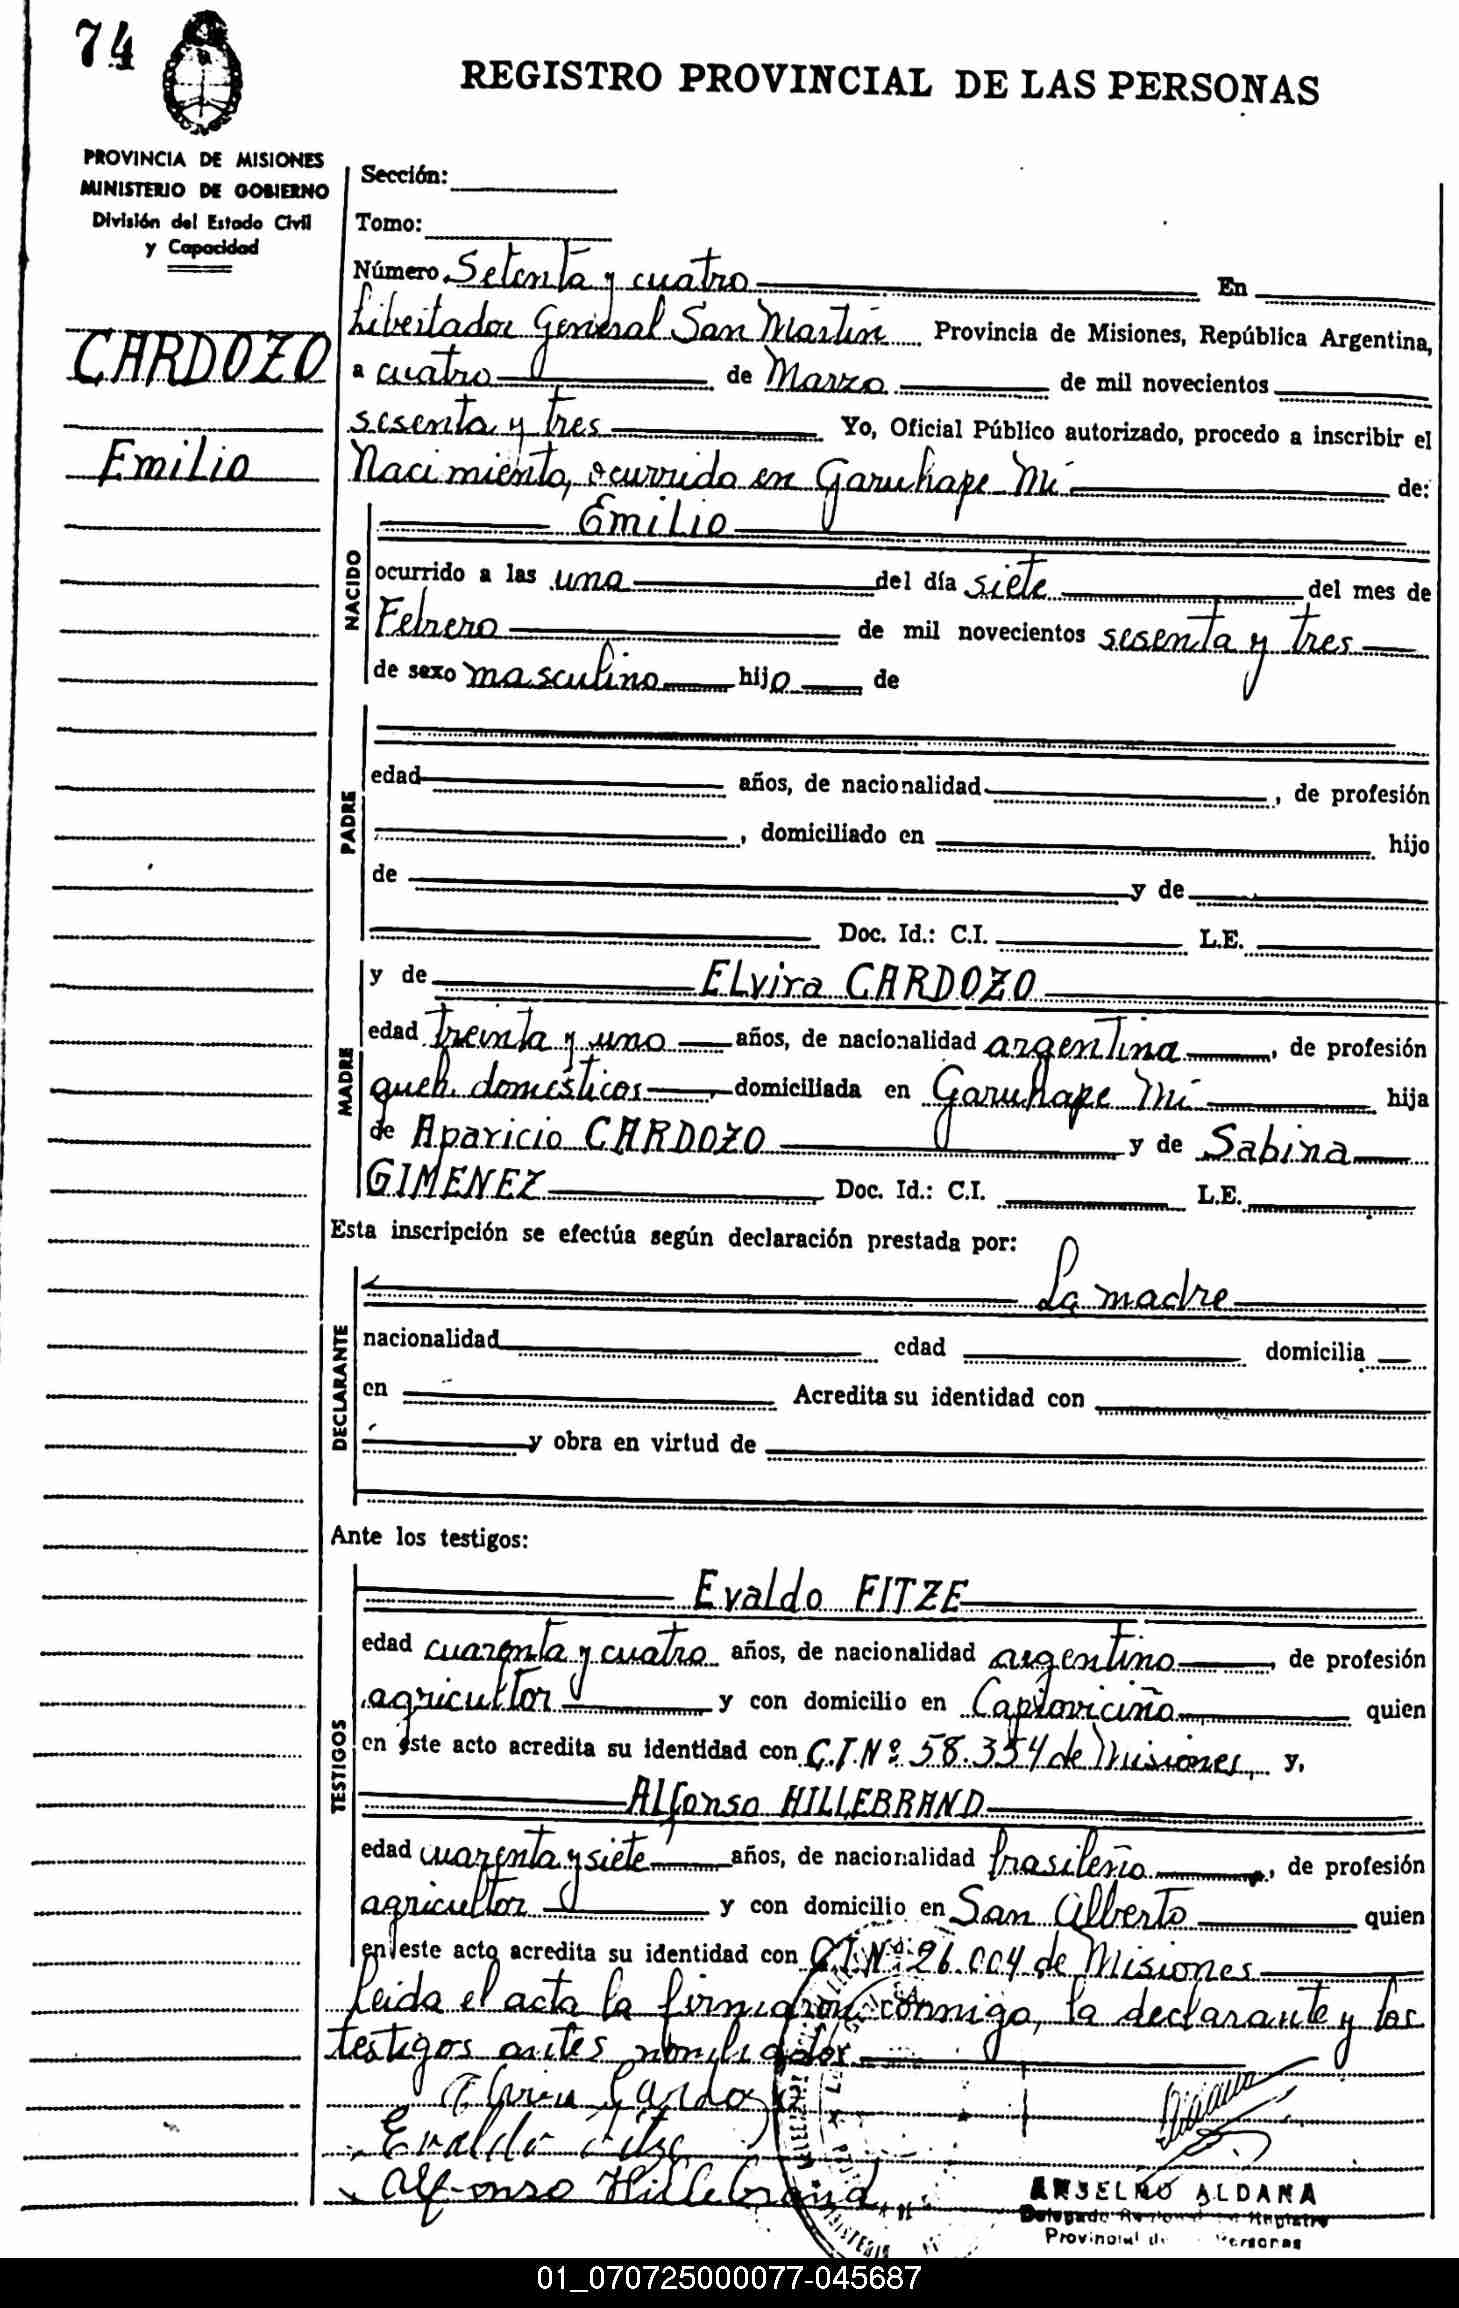 74
REGISTRO PROVINCIAL DE LAS PERSONAS
PROVINCIA DE MISIONES
MINISTERIO DE GOBIERNO
División del Estado Civil
y Capacidad
CARDOZO
Emilio
Sección:
Tomo:
Número Setenta y cuatro En
Libertador General San Martín Provincia de Misiones, República Argentina,
a cuatro de Marzo de mil novecientos
sesenta y tres Yo, Oficial Público autorizado, procedo a inscribir el
Nacimiento, ocurrido en Garuhape Mí de:
NACIDO
Emilio
ocurrido a las una del día siete del mes de
Febrero de mil novecientos sesenta y tres
de sexo masculino hijo de
PADRE
edad años, de nacionalidad , de profesión
, domiciliado en hijo
de y de
Doc. Id.: C.I. L.E.
MADRE
y de Elvira CARDOZO
edad treinta y uno años, de nacionalidad argentina, de profesión
queh. domésticos domiciliada en Garuhape Mí hija
de Aparicio CARDOZO y de Sabina
GIMENEZ Doc. Id.: C.I. L.E.
Esta inscripción se efectúa según declaración prestada por:
DECLARANTE
La madre
nacionalidad edad domicilia
en Acredita su identidad con
y obra en virtud de
Ante los testigos:
TESTIGOS
Evaldo FITZE
edad cuarenta y cuatro años, de nacionalidad argentino, de profesión
agricultor y con domicilio en quien
en este acto acredita su identidad con C.I.Nº 58.354 de Misiones, y,
Alfonso HILLEBRAND
edad cuarenta y siete años, de nacionalidad brasileño, de profesión
agricultor y con domicilio en San Alberto quien
en este acto acredita su identidad con C.I.Nº 26.004 de Misiones
Leida el acta la firmaron conmigo, la declarante y los
testigos antes nombrados
Elvira Cardozo
Evaldo Fitze
Alfonso Hillebrand
ANSELMO ALDANA
Delegado Registro
Provincial de Personas
01_070725000077-045687